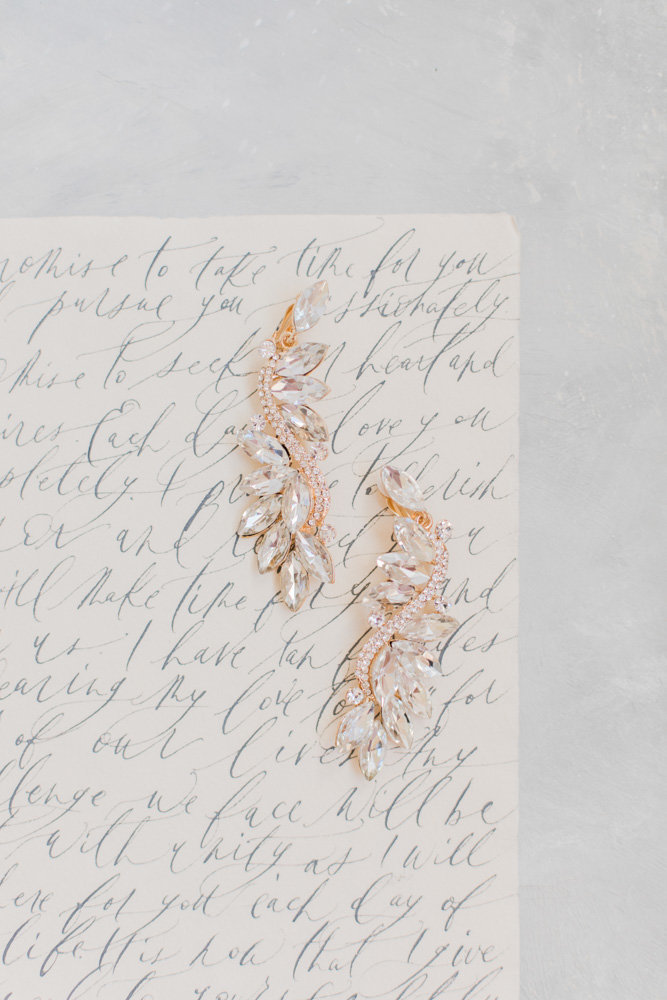 romise to take time for you
pursue you ssionately.
mise to seek heart and
ires. Each da love you
pletely. & to cherish
and
ill make time for and
us. I have
earing my love to for
of our lives. Any
llenge we face will be
with unity as I will
here for you each day of
life. It is now that I give